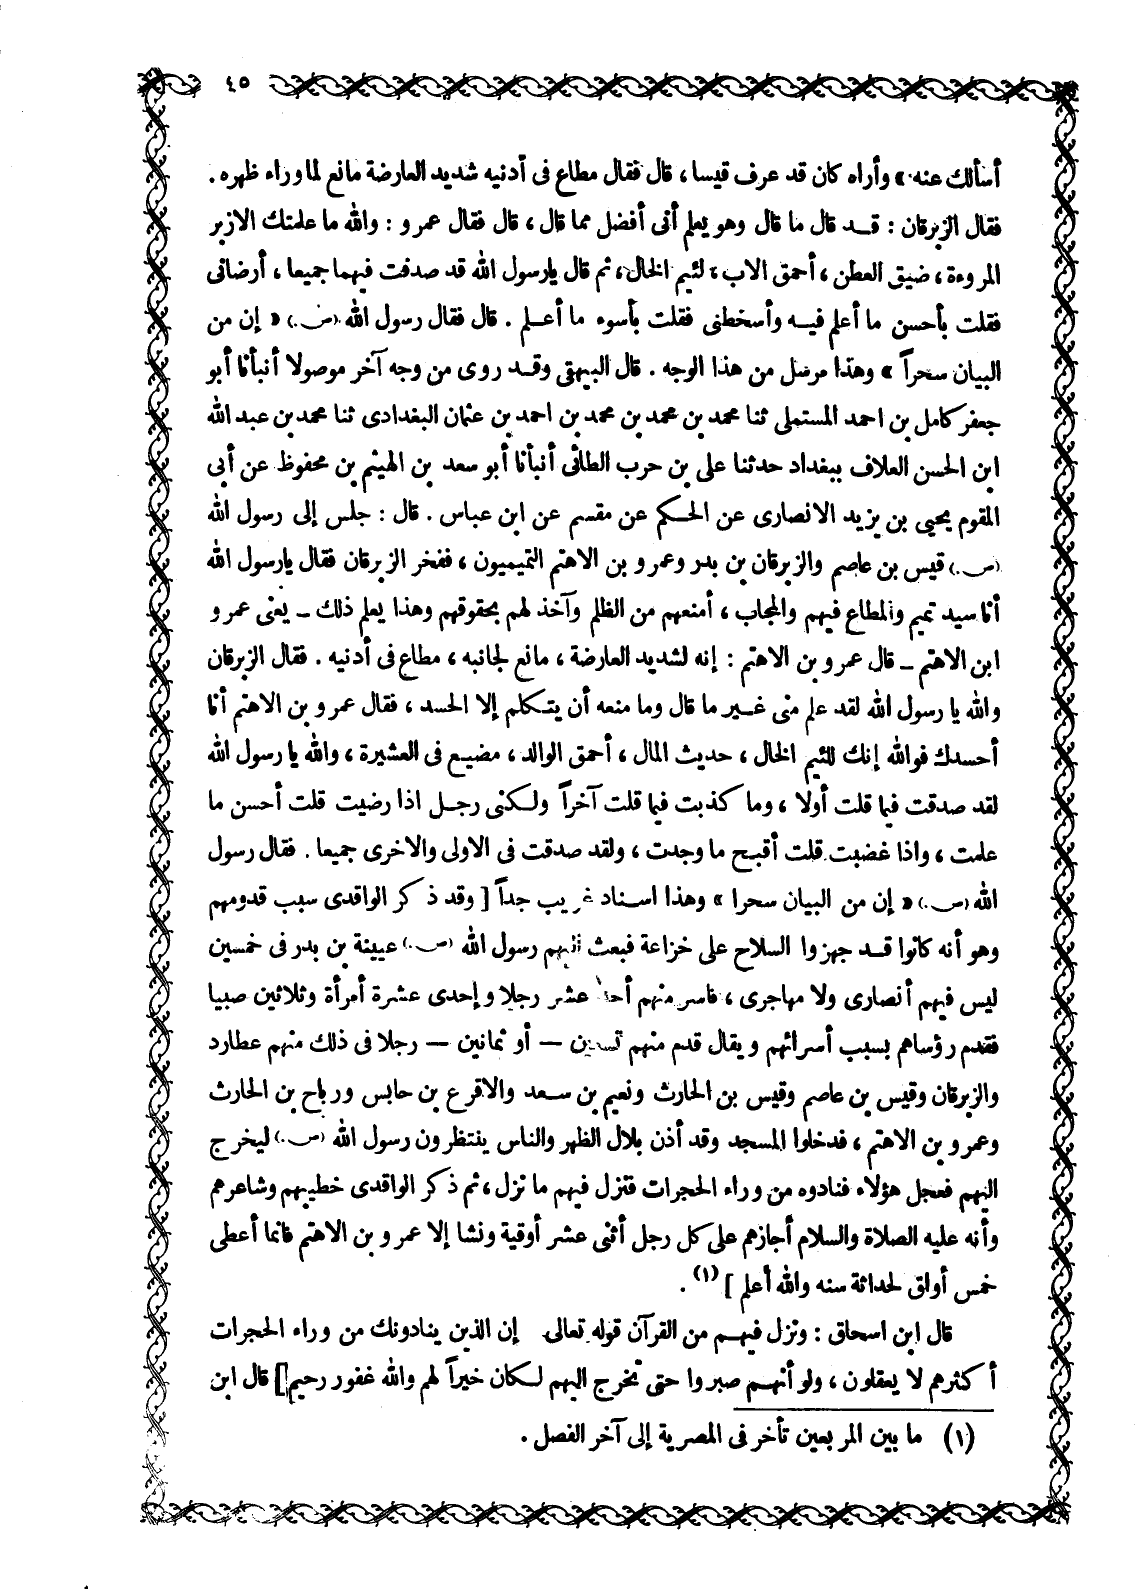 ٤٥
أسألك عنه » وأراه كان قد عرف قيسا ، قال فقال مطاع فى أدنيه شديد العارضة مانع لما وراء ظهره .
فقال الزبرقان : قد قال ما قال وهو يعلم أنى أفضل مما قال ، قال فقال عمرو : والله ما علمتك الازبر
المروءة ، ضيق العطن ، أحمق الاب ، لئيم الخال ، ثم قال يارسول الله قد صدقت فيهما جميعا ، أرضانى
فقلت بأحسن ما أعلم فيه وأسخطنى فقلت بأسوء ما أعلم . قال فقال رسول الله (ص.) « إن من
البيان سحراً » وهذا مرسل من هذا الوجه . قال البيهقى وقد روى من وجه آخر موصولا أنبأنا أبو
جعفر كامل بن احمد المستملى ثنا محمد بن محمد بن محمد بن احمد بن عثمان البغدادى ثنا محمد بن عبد الله
ابن الحسن العلاف ببغداد حدثنا على بن حرب الطائى أنبأنا أبو سعد بن الهيثم بن محفوظ عن أبى
المقوم يحيى بن يزيد الانصارى عن الحكم عن مقسم عن ابن عباس . قال : جلس إلى رسول الله
(ص.) قيس بن عاصم والزبرقان بن بدر وعمرو بن الاهتم التميميون ، ففخر الزبرقان فقال يارسول الله
أنا سيد تميم والمطاع فيهم والمجاب ، أمنعهم من الظلم وآخذ لهم بحقوقهم وهذا يعلم ذلك ـ يعنى عمرو
ابن الاهتم ـ قال عمرو بن الاهتم : إنه لشديد العارضة ، مانع لجانبه ، مطاع فى أدنيه . فقال الزبرقان
والله يا رسول الله لقد علم منى غير ما قال وما منعه أن يتكلم إلا الحسد ، فقال عمرو بن الاهتم أنا
أحسدك فوالله إنك للئيم الخال ، حديث المال ، أحمق الوالد ، مضيع فى العشيرة ، والله يا رسول الله
لقد صدقت فيما قلت أولا ، وما كذبت فيما قلت آخراً ولكنى رجل اذا رضيت قلت أحسن ما
علمت ، واذا غضبت قلت أقبح ما وجدت ، ولقد صدقت فى الاولى والاخرى جميعا . فقال رسول
الله (ص.) « إن من البيان سحرا » وهذا اسناد غريب جداً [ وقد ذكر الواقدى سبب قدومهم
وهو أنه كانوا قد جهزوا السلاح على خزاعة فبعث اليهم رسول الله (ص.) عيينة بن بدر فى خمسين
ليس فيهم أنصارى ولا مهاجرى ، فاسر منهم أحد عشر رجلا وإحدى عشرة أمرأة وثلاثين صبيا
فقدم رؤساهم بسبب أسرائهم ويقال قدم منهم تسعين — أو ثمانين — رجلا فى ذلك منهم عطارد
والزبرقان وقيس بن عاصم وقيس بن الحارث ونعيم بن سعد والاقرع بن حابس ورباح بن الحارث
وعمرو بن الاهتم ، فدخلوا المسجد وقد أذن بلال الظهر والناس ينتظرون رسول الله (ص.) ليخرج
اليهم فعجل هؤلاء فنادوه من وراء الحجرات فنزل فيهم ما نزل ، ثم ذكر الواقدى خطيبهم وشاعرهم
وأنه عليه الصلاة والسلام أجازهم على كل رجل أثنى عشر أوقية ونشا إلا عمرو بن الاهتم فانما أعطى
خمس أواق لحداثة سنه والله أعلم ] (١) .
قال ابن اسحاق : ونزل فيهم من القرآن قوله تعالى إن الذين ينادونك من وراء الحجرات
أكثرهم لا يعقلون ، ولو أنهم صبروا حتى تخرج اليهم لكان خيراً لهم والله غفور رحيم] قال ابن
(١) ما بين المربعين تأخر فى المصرية إلى آخر الفصل .